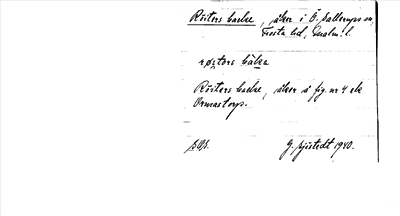 Rösters backe, åker i Ö. Sallerups sn,
Frosta hd, Malm. l.
røstərs bakə
Rösters backe, åker å fg. nr 4 ell
Ormastorp.
G. Sjöstedt 1940.